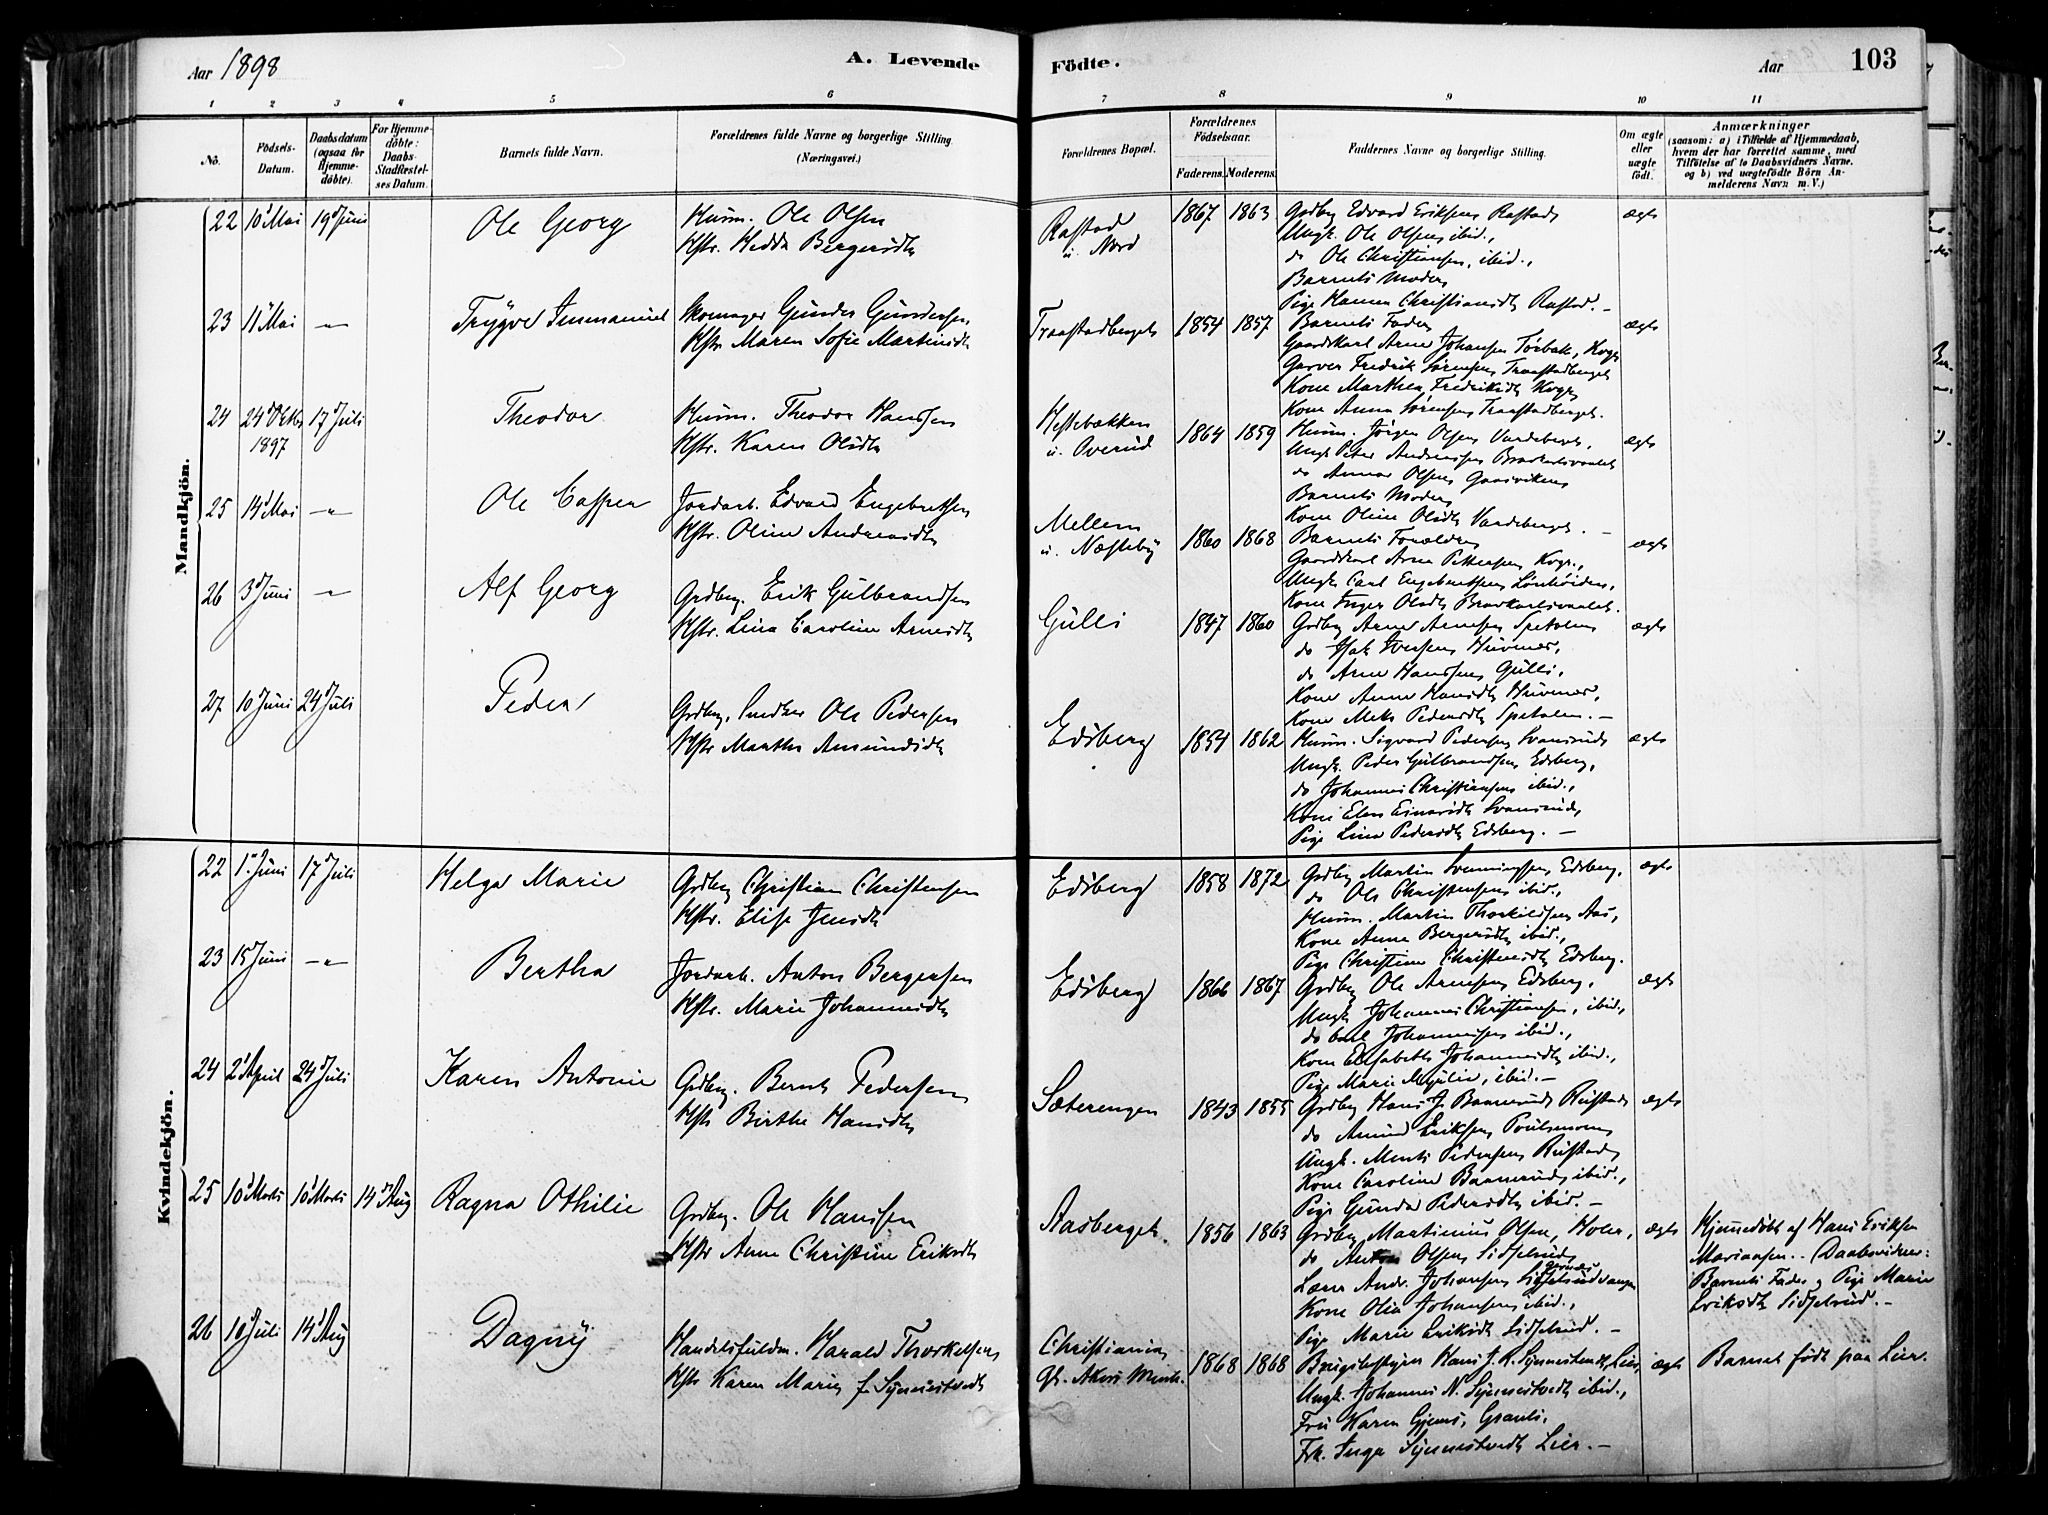 Aar 1898
A. Levende
Födte.
Aar
103
1 2 3 4 5 6 7 8 9 10 11
No.
Födsels-Datum.
Daabsdatum (ogsaa for Hjemme-döbte).
For Hjemme-döbte: Daabs-Stadfestel-ses Datum.
Barnets fulde Navn.
Forældrenes fulde Navne og borgerlige Stilling.
(Næringsvei.)
Forældrenes Bopæl.
Forældrenes Födselsaar.
Faderens. Moderens.
Faddernes Navne og borgerlige Stilling.
Om ægte eller uægte födt.
Anmærkninger
(saasom: a) i Tilfælde af Hjemmedaab, hvem der har forrettet samme, med Tilföielse af to Daabsvidners Navne. og b) ved uægtefödte Börn An-melderens Navn m. V.)
Mandkjön.
22 10 Mai 19 Juni
Ole Georg
Husm. Ole Olsen
Hstr. Hedda Bergersdtr
Rastad
u. Nord
1867 1863
Grdbr Edvard Eriksen Rastad
Ungk. Ole Olsen ibid.,
do Ole Christiansen, ibid.,
Barnets Moder
Pige Hanna Christiansdtr Rastad. —
ægte
23 11 Mai —"—
Trygve Immanuel
Skomager Gunder Gundersen
Hstr Maren Sofie Martinsdtr
Traastadberget
1854 1857
Barnets Fader
Gaardskarl Arne Johansen Torbak, Kogr
Garver Fredrik Sørensen Traastadberget
Kone Marthea Fredriksdtr Kogr
Kone Anna Sørensen Traastadberget.
ægte
24 24 Oktbr 1897 17 Juli
Theodor
Husm. Theodor Hanssen
Hstr. Karen Olsdtr
Hestebækken
u. Overud
1864 1859
Husm. Jørgen Olsen Vardeberget,
Ungk Peter Andreassen
do Annar Olsen Gaasviken
Barnets Moder
Kone Oline Olsdtr Vardeberget. —
ægte
25 14 Mai —"—
Ole Casper
Jordarb. Edvard Engebretsen
Hstr. Oline Andreasdtr
Mellem
u. Næsteby
1860 1868
Barnets Forældre
Gaardskarl Arne Pettersen Kogr.,
Ungk Carl Engebretsen
Kone Inger Olsdtr
ægte
26 3 Juni —"—
Alf Georg
Grdbr. Erik Gulbrandsen
Hstr. Lina Caroline Arnesdtr
Gulli
1847 1860
Grdbr Arne Arnesen Spetalen
do Isak Iversen Huvenes,
do Arne Hanssen Gulli,
Kone Anne Hansdtr Huvenes,
Kone Mete Pedersdtr Spetalen. —
ægte
27 10 Juni 24 Juli
Peder
Grdbr. Snedker Ole Pedersen
Hstr Marthe Amundsdtr
Edsberg
1854 1862
Husm. Sigvard Pedersen Svensrud
Ungk. Peder Gulbrandsen Edsberg,
do Johannes Christiansen ibid.,
Kone Elen Einarsdtr Svensrud,
Pige Lina Pedersdtr Edsberg. —
ægte
Kvindekjön.
22 1 Juni 17 Juli
Helga Marie
Grdbr Christian Christensen
Hstr. Elise Jensdtr
Edsberg
1858 1872
Grdbr Martin Svenningsen Edsberg,
do Ole Christensen ibid.,
Husm. Martin Thorkildsen Aas,
Kone Anne Bergersdtr ibid.,
Pige Christine Christensdtr Edsberg.
ægte
23 15 Juni —"—
Bertha
Jordarb. Anton Bergersen
Hstr. Marie Johannesdtr
Edsberg
1866 1867
Grdbr Ole Arnesen Edsberg,
Ungk Johannes Christiansen, ibid.,
do Carl Johannesen ibid.,
Kone Elisabeth Johannesdtr ibid.,
Pige Marie Mysilie, ibid. —
ægte
24 2 April 24 Juli
Karen Antonie
Grdbr. Bernt Pedersen
Hstr Birthe Hansdtr
Sæterengen
1843 1855
Grdbr Hans J. Baanerud Rustad
do Amund Eriksen
Ungk. Ments Pedersen Rustad
Kone Caroline Baanerud ibid.,
Pige Gunda Pedersdtr ibid. —
ægte
25 10 Marts 10 Marts 14 Aug
Ragna Othilie
Grdbr. Ole Hanssen
Hstr Anne Christine Eriksdtr
Aasberget.
1856 1863
Grdbr Martinius Olsen, Holer,
do Anton Olsen Sidselrud
Lærer Andr. Johansen
Kone Olia Johansen ibid.,
Pige Marie Eriksdtr Sidselrud. —
ægte
Hjemmedöbt af Hans Eriksen
Mariaasen. Daabsvidner:
Barnets Fader og Pige Marie
Eriksdtr Sidselrud. —
26 10 Juli 14 Aug
Dagny
Handelsfuldm. Harald Thorkelsen
Hstr Karen Marie f. Synnestvedt
Christiania
Gl. Akers Menh.
1868 1868
Brugsbestyrer Hans J. R. Synnestvedt, Lier,
Ungk. Johannes N. Synnestvedt ibid.,
Fru Karen Gjems, Granli,
Frk. Inga Synnestvedt Lier. —
ægte
Barnet födt paa Lier.